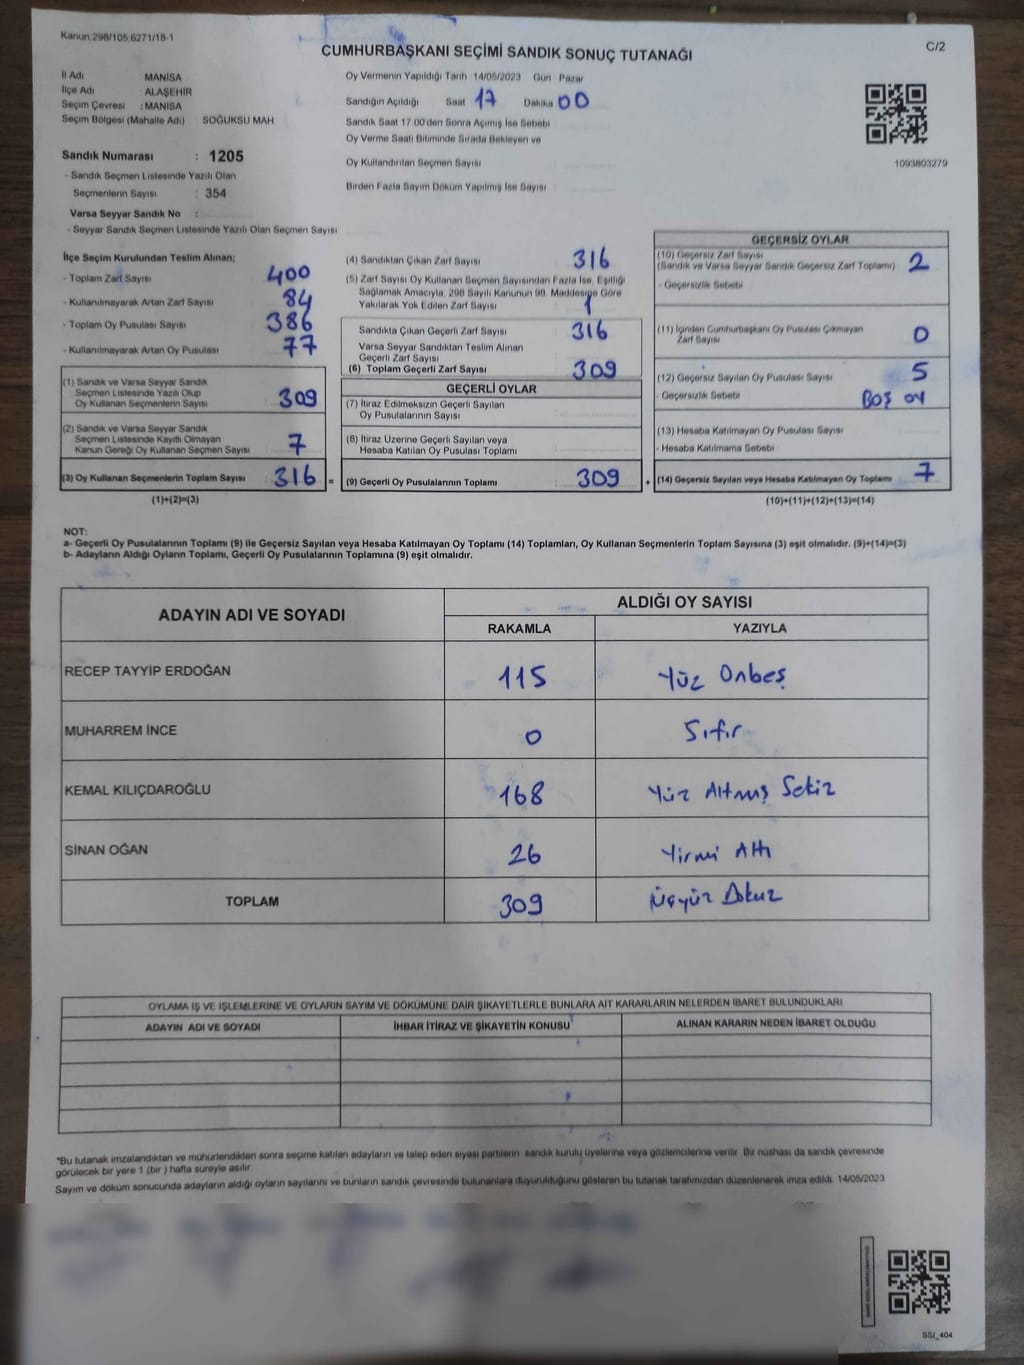 Kanun:298/105;6271/18-1
C/2
CUMHURBAŞKANI SEÇİMİ SANDIK SONUÇ TUTANAĞI
İl Adı MANİSA
İlçe Adı ALAŞEHİR
Seçim Çevresi : MANİSA
Seçim Bölgesi (Mahalle Adı) SOĞUKSU MAH
Sandık Numarası : 1205
- Sandık Seçmen Listesinde Yazılı Olan
Seçmenlerin Sayısı : 354
Varsa Seyyar Sandık No :
- Seyyar Sandık Seçmen Listesinde Yazılı Olan Seçmen Sayısı
Oy Vermenin Yapıldığı Tarih 14/05/2023 Gün Pazar
Sandığın Açıldığı Saat 17 Dakika 00
Sandık Saat 17:00'den Sonra Açımış İse Sebebi
Oy Verme Saati Bitiminde Sırada Bekleyen ve
Oy Kullandırılan Seçmen Sayısı
Birden Fazla Sayım Döküm Yapılmış İse Sayısı
1093803279
İlçe Seçim Kurulundan Teslim Alınan;
- Toplam Zarf Sayısı 400
- Kullanılmayarak Artan Zarf Sayısı 84
- Toplam Oy Pusulası Sayısı 386
- Kullanılmayarak Artan Oy Pusulası 77
(1) Sandık ve Varsa Seyyar Sandık
Seçmen Listesinde Yazılı Olup
Oy Kullanan Seçmenlerin Sayısı 309
(2) Sandık ve Varsa Seyyar Sandık
Seçmen Listesinde Kayıtlı Olmayan
Kanun Gereği Oy Kullanan Seçmen Sayısı 7
(3) Oy Kullanan Seçmenlerin Toplam Sayısı 316 =
(1)+(2)=(3)
(4) Sandıktan Çıkan Zarf Sayısı 316
(5) Zarf Sayısı Oy Kullanan Seçmen Sayısından Fazla İse, Eşitliği
Sağlamak Amacıyla, 298 Sayılı Kanunun 98. Maddesine Göre
Yakılarak Yok Edilen Zarf Sayısı 1
Sandıkta Çıkan Geçerli Zarf Sayısı 316
Varsa Seyyar Sandıktan Teslim Alınan
Geçerli Zarf Sayısı
(6) Toplam Geçerli Zarf Sayısı 309
GEÇERLİ OYLAR
(7) İtiraz Edilmeksizin Geçerli Sayılan
Oy Pusulalarının Sayısı
(8) İtiraz Üzerine Geçerli Sayılan veya
Hesaba Katılan Oy Pusulası Toplamı
(9) Geçerli Oy Pusulalarının Toplamı 309 +
GEÇERSİZ OYLAR
(10) Geçersiz Zarf Sayısı
(Sandık ve Varsa Seyyar Sandık Geçersiz Zarf Toplamı) 2
- Geçersizlik Sebebi
(11) İçinden Cumhurbaşkanı Oy Pusulası Çıkmayan
Zarf Sayısı 0
(12) Geçersiz Sayılan Oy Pusulası Sayısı 5
- Geçersizlik Sebebi BOŞ OY
(13) Hesaba Katılmayan Oy Pusulası Sayısı
- Hesaba Katılmama Sebebi
(14) Geçersiz Sayılan veya Hesaba Katılmayan Oy Toplamı 7
(10)+(11)+(12)+(13)=(14)
NOT:
a- Geçerli Oy Pusulalarının Toplamı (9) ile Geçersiz Sayılan veya Hesaba Katılmayan Oy Toplamı (14) Toplamları, Oy Kullanan Seçmenlerin Toplam Sayısına (3) eşit olmalıdır. (9)+(14)=(3)
b- Adayların Aldığı Oyların Toplamı, Geçerli Oy Pusulalarının Toplamına (9) eşit olmalıdır.
ADAYIN ADI VE SOYADI ALDIĞI OY SAYISI
RAKAMLA YAZIYLA
RECEP TAYYİP ERDOĞAN 115 Yüz Onbeş
MUHARREM İNCE 0 Sıfır
KEMAL KILIÇDAROĞLU 168 Yüz Altmış Sekiz
SİNAN OĞAN 26 Yirmi Altı
TOPLAM 309 Üçyüz Dokuz
OYLAMA İŞ VE İŞLEMLERİNE VE OYLARIN SAYIM VE DÖKÜMÜNE DAİR ŞİKAYETLERLE BUNLARA AİT KARARLARIN NELERDEN İBARET BULUNDUKLARI
ADAYIN ADI VE SOYADI İHBAR İTİRAZ VE ŞİKAYETİN KONUSU ALINAN KARARIN NEDEN İBARET OLDUĞU
*Bu tutanak imzalandıktan ve mühürlendikten sonra seçime katılan adayların ve talep eden siyasi partilerin sandık kurulu üyelerine veya gözlemcilerine verilir. Bir nüshası da sandık çevresinde
görülecek bir yere 1 (bir) hafta süreyle asılır.
Sayım ve döküm sonucunda adayların aldığı oyların sayılarını ve bunların sandık çevresinde bulunanlara duyurulduğunu gösteren bu tutanak tarafımızdan düzenlenerek imza edildi. 14/05/2023
SSI_404